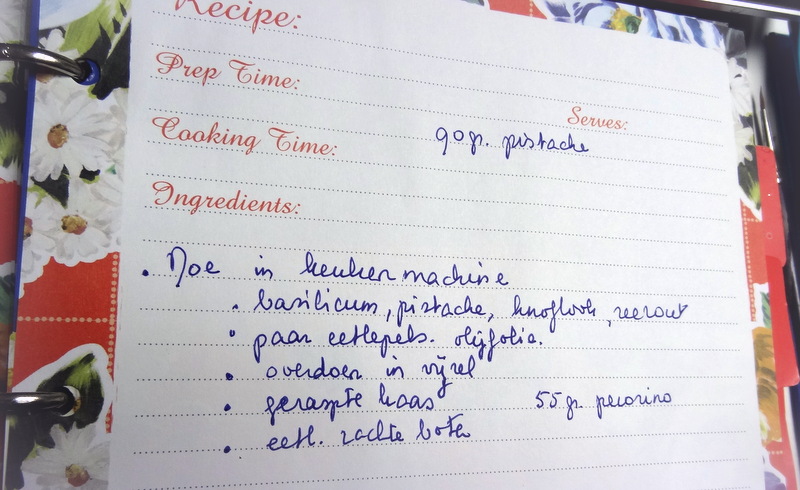 Recipe:
Prep Time:
Serves:
Cooking Time: 90 gr. pistache
Ingredients:
• Doe in keukenmachine
• basilicum, pistache, knoflook, zeezout
• paar eetlepels. olijfolie.
• overdoen in vijzel
• geraspte kaas 55 gr. pecorino
• eetl. zachte boter